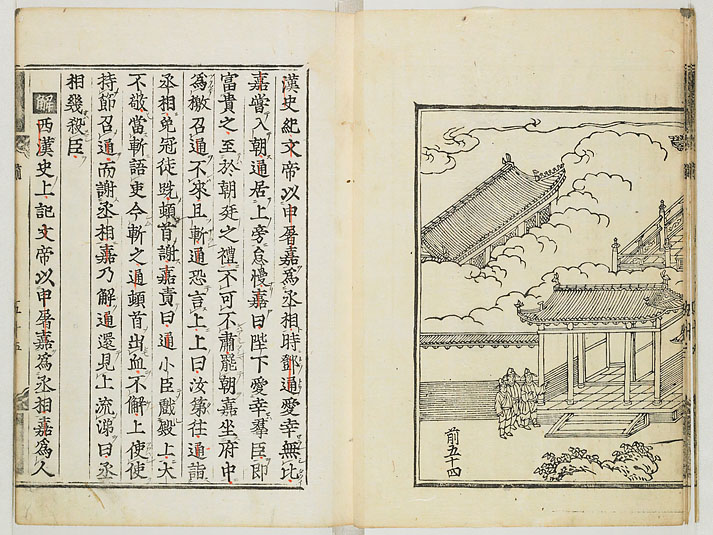 前五十四
漢史紀文帝以申屠嘉爲丞相時鄧通愛幸無比
嘉嘗入朝通居上旁怠慢嘉曰陛下愛幸羣臣即
富貴之至於朝廷之禮不可不肅罷朝嘉坐府中
爲檄召通不來且斬通恐言上上曰汝第往通詣
丞相免冠徒跣頓首謝嘉責曰通小臣戲殿上大
不敬當斬語吏今斬之通頓首出血不解上使使
持節召通而謝丞相嘉乃解通還見上流涕曰丞
相幾殺臣
解西漢史上記文帝以申屠嘉爲丞相嘉爲人
五十五